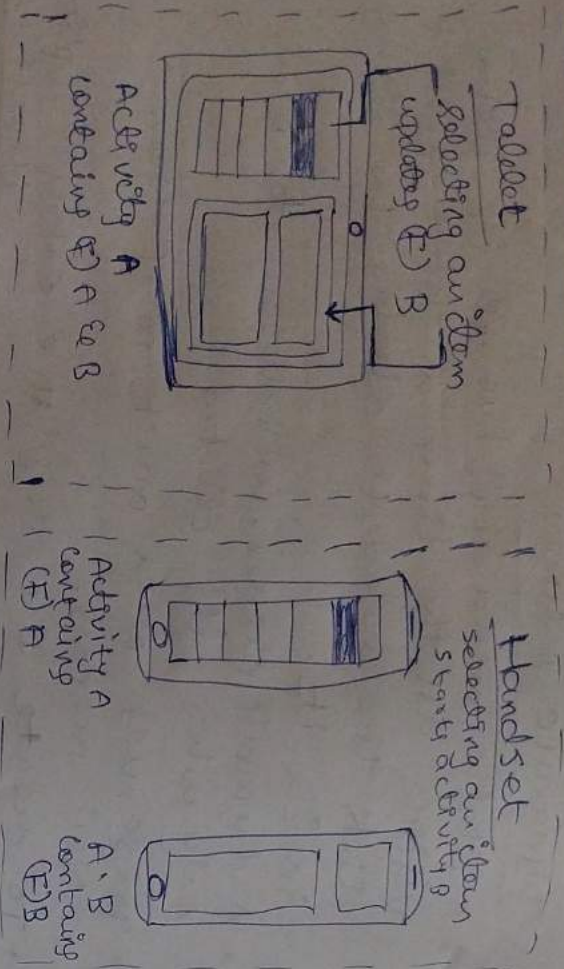 Tablet
selecting an item
updates Ⓕ B
Activity A
containg Ⓕ A & B
Handset
selecting an item
starts activity B
Activity A
containg
Ⓕ A
A. B
containg
Ⓕ B